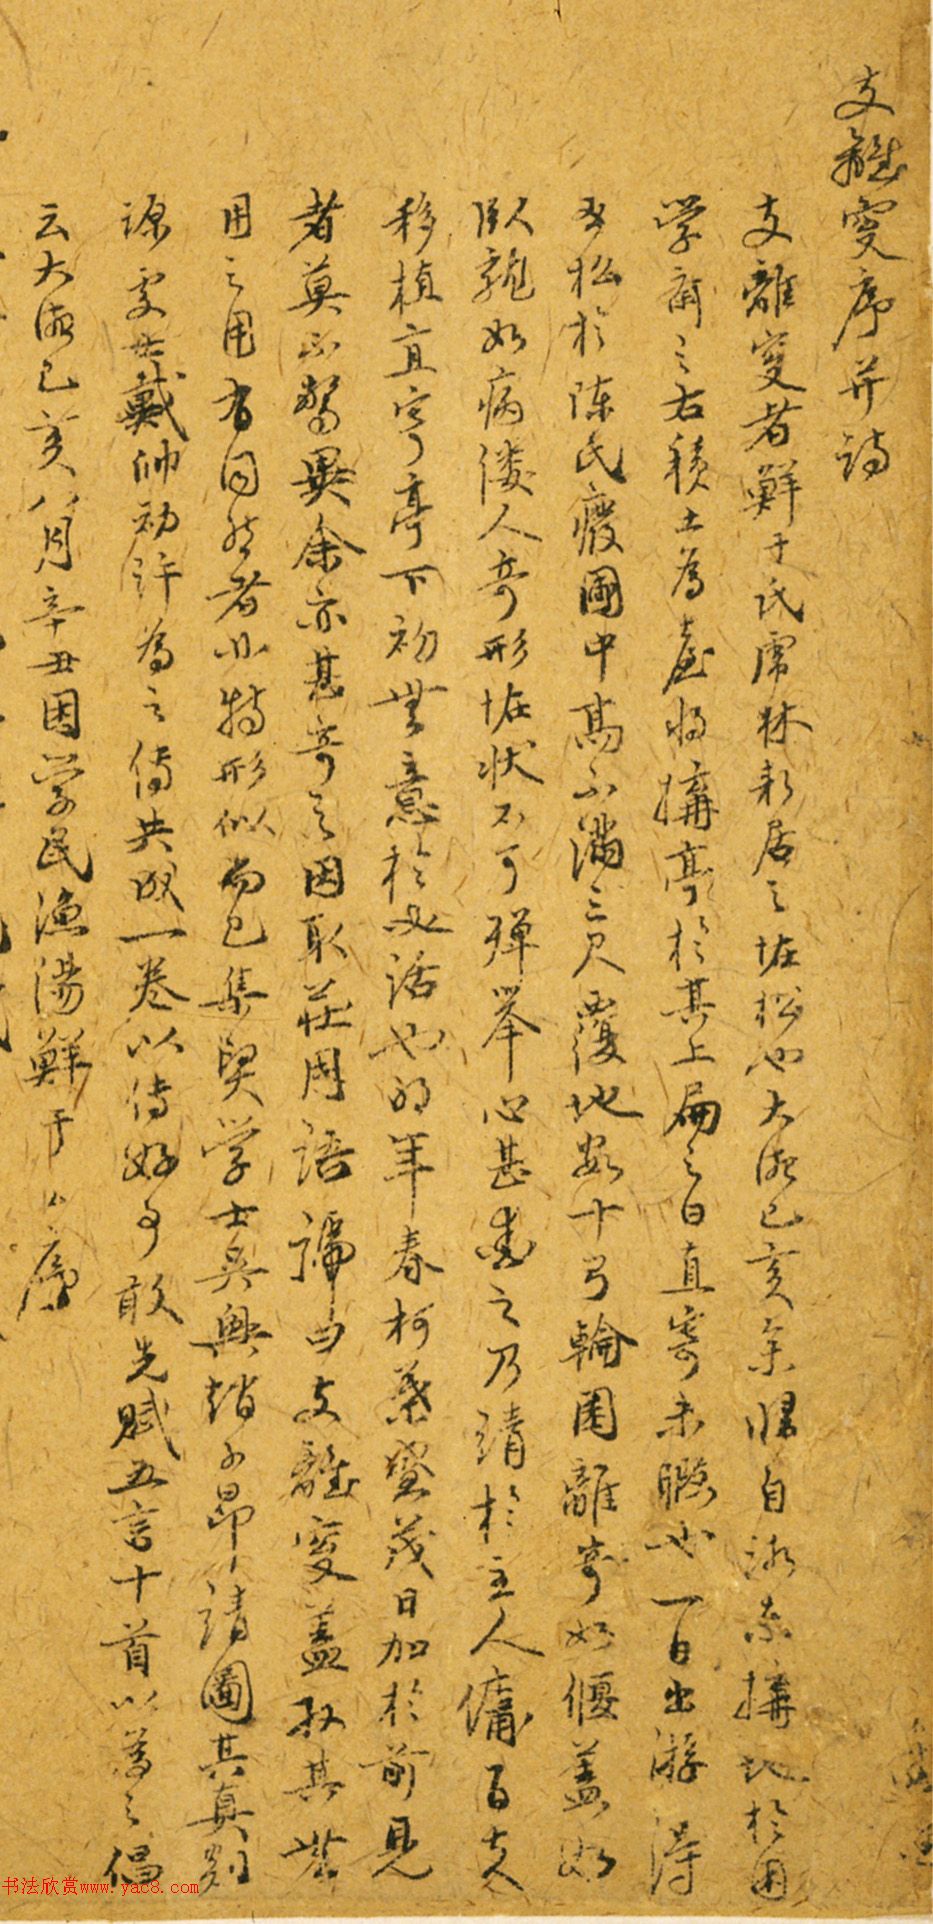 支離叟序并詩
支離叟者鮮于氏虎林新居之怪松也大德己亥余歸自浙東搆地於困
学齋之右積土為臺將搆亭於其上扁之曰直寄未暇也一日出游得
於松於陳氏廢圃中高不滿三尺覆地數十弓輪囷離奇如偃蓋如
臥龍如病僂人奇形怪狀不可殫舉心甚愛之乃請於主人傭百夫
移植直寄亭下初無意於必活也明年春柯葉盛茂日加於前見
者莫不驚異余亦甚奇之因取莊周語謚曰支離叟蓋取其無
用之用有同然者非特形似而已集賢学士吳興趙子昂請圖其真剡
源處士戴帥初許為之傳共成一卷以傳好事敢先賦五言十首以為之倡
云大德己亥八月辛丑困学民漁陽鮮于 序
书法欣赏www.yac8.com